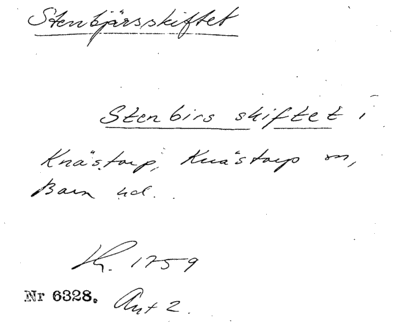 Stenbjärsskiftet
Stenbirs skiftet i
Knästorp, Knästorp sn,
Bara hd.
Lh. 1759
Nr 6328. Ant 2.